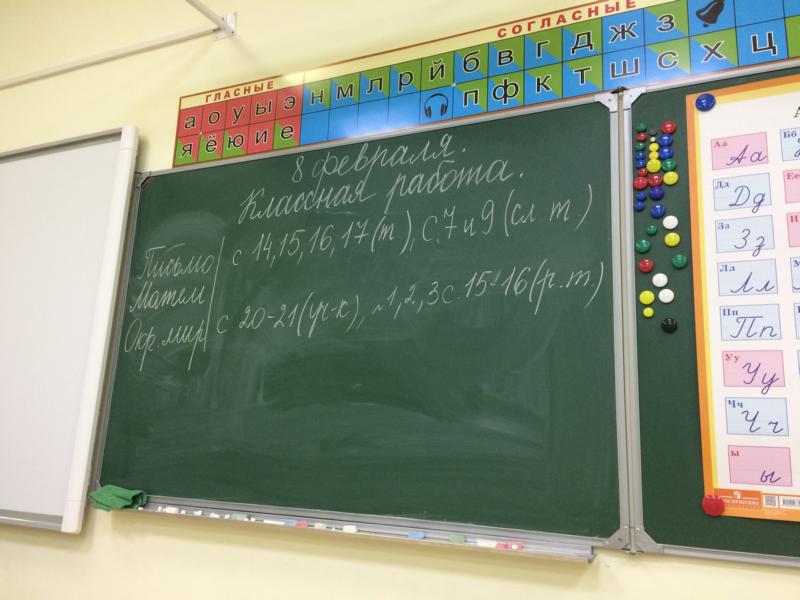 СОГЛАСНЫЕ
ГЛАСНЫЕ
а о у ы э н м л р й б в г д ж з
я ё ю и е п ф к т ш с х ц
8 февраля.
Классная работа.
Письмо с 14, 15, 16, 17 (т), с. 7 и 9 (сл. т.)
Матем
Окр. мир с. 20-21 (уч-к), № 1, 2, 3 с. 15-16 (р. т.)
Аа Аа
Бб
Дд Дд
Зз Зз
Лл Лл
Пп Пп
Уу Уу
Чч Чч
Ы ы
ПРОСВЕЩЕНИЕ